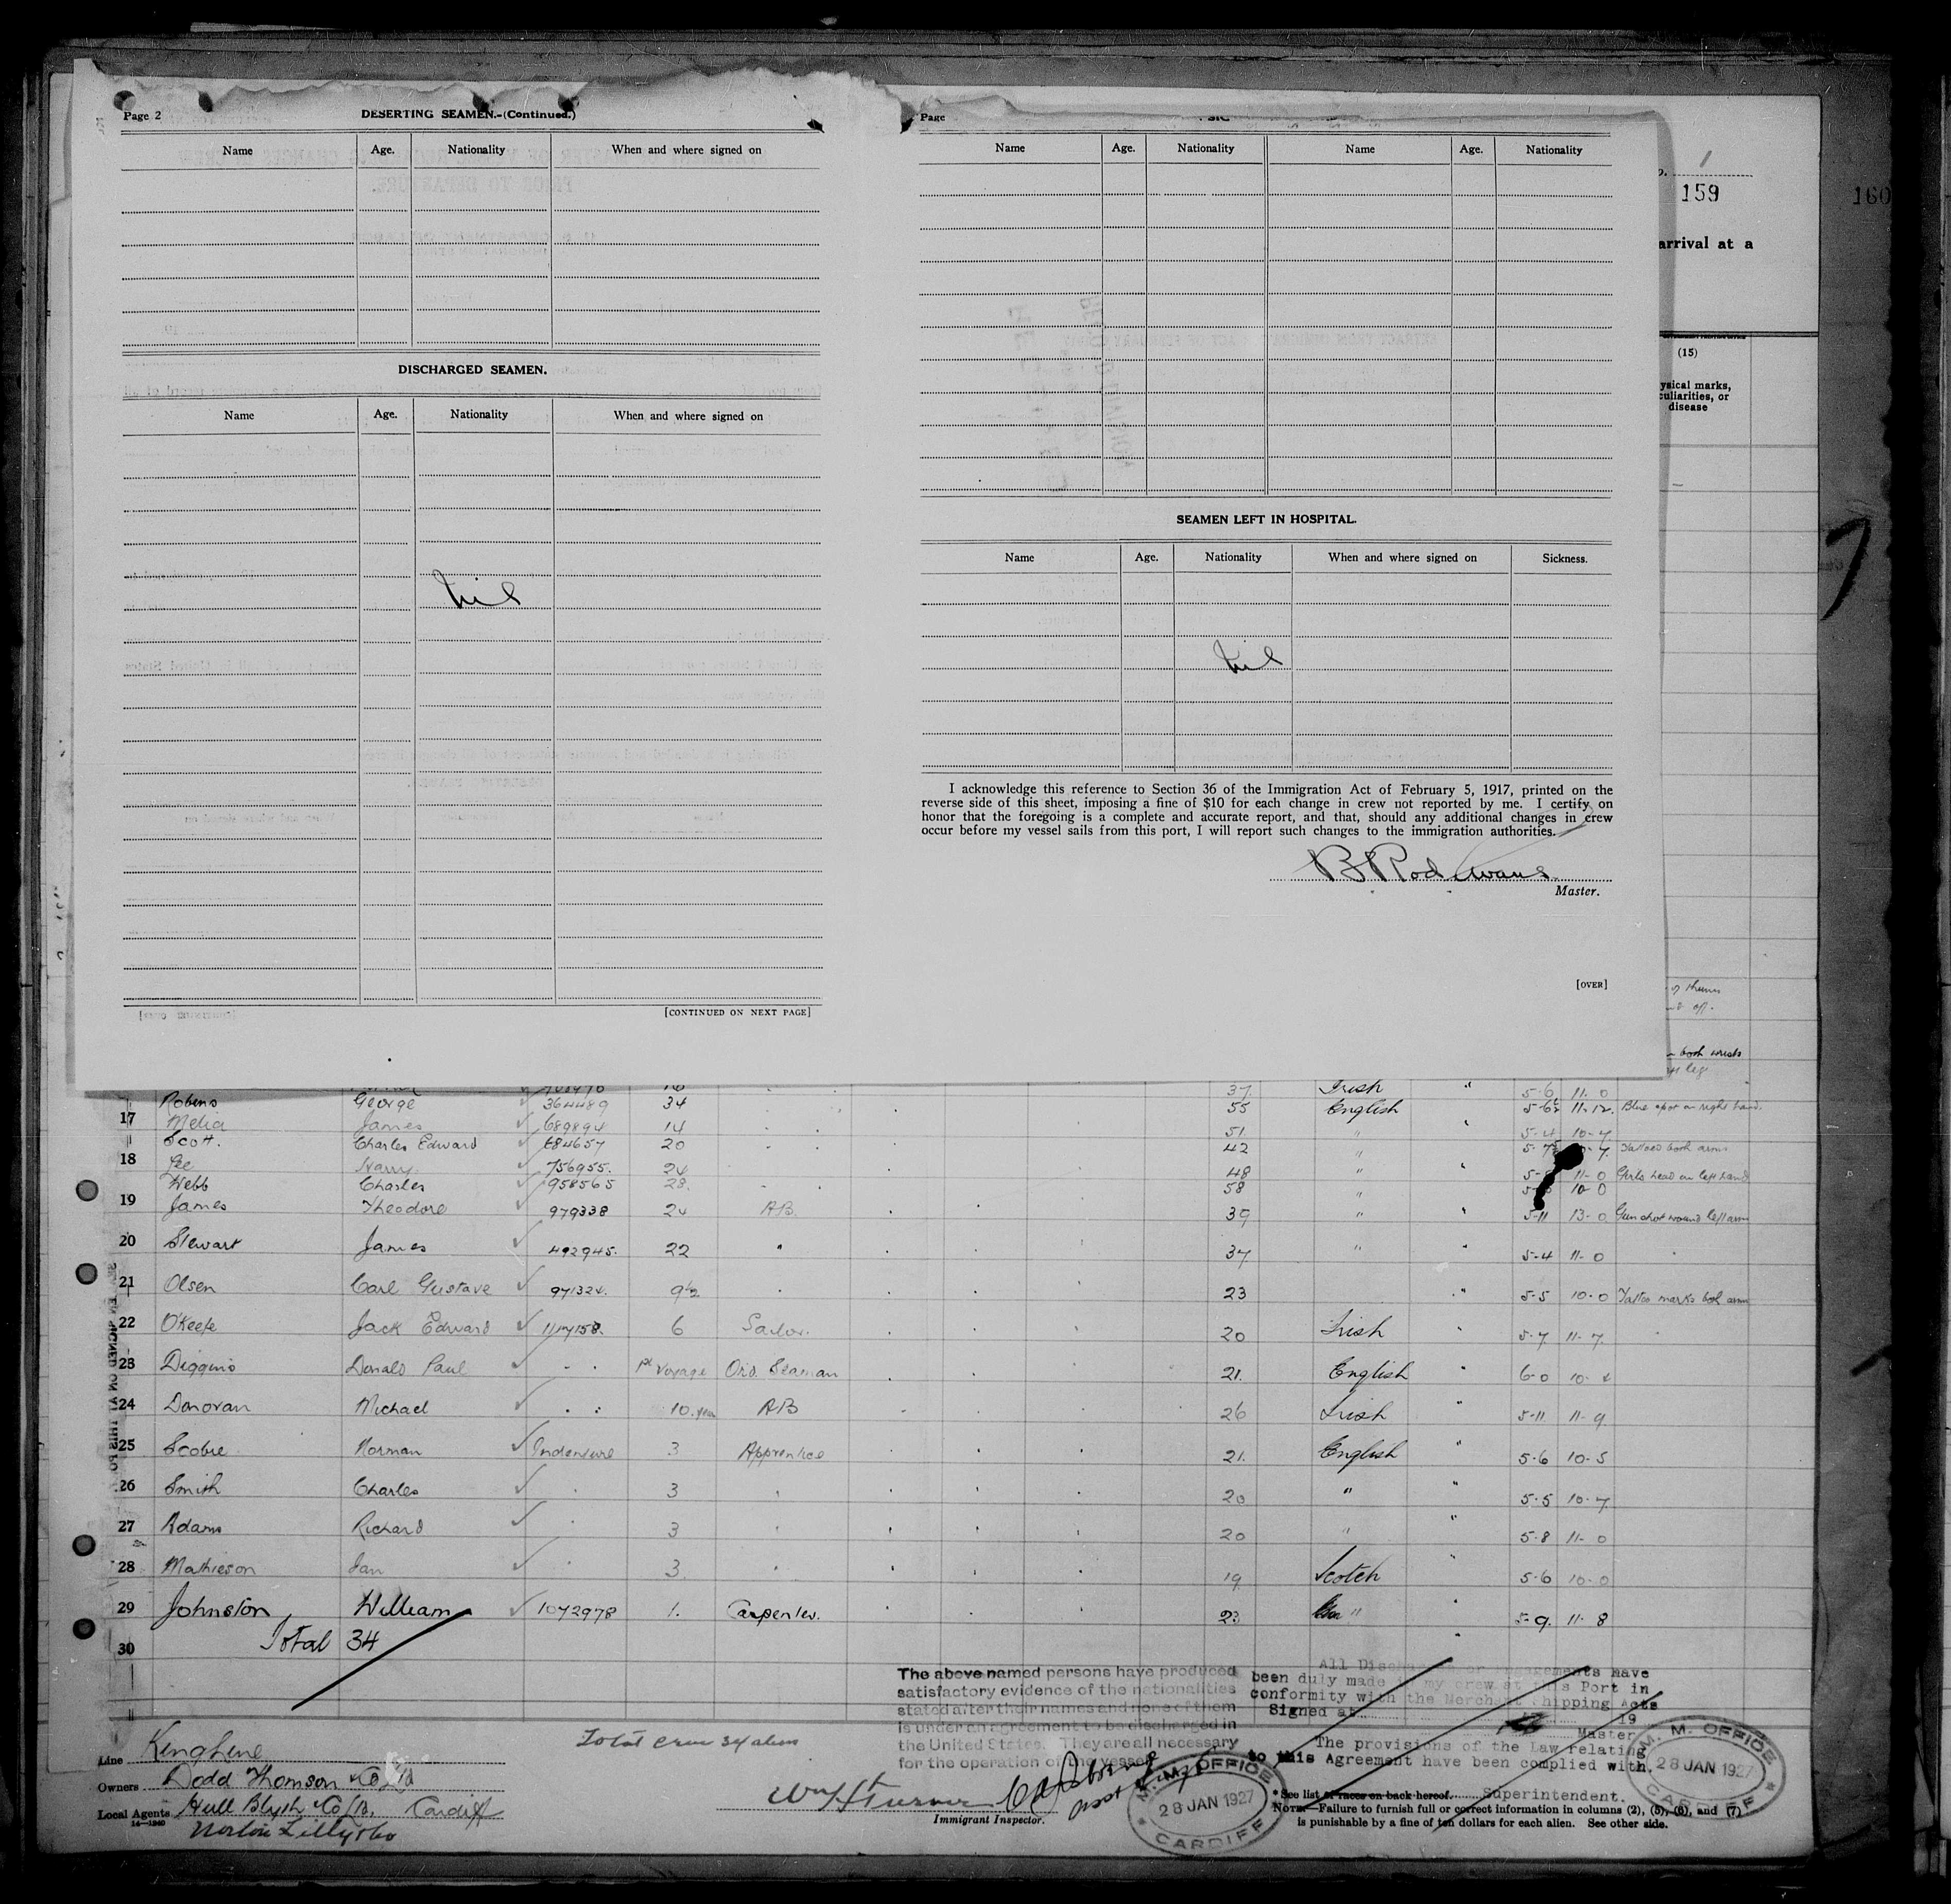 Page 2
DESERTING SEAMEN.-(Continued.)
Name Age. Nationality When and where signed on
DISCHARGED SEAMEN.
Name Age. Nationality When and where signed on
nil
[CONTINUED ON NEXT PAGE]
Page
Name Age. Nationality Name Age. Nationality
SEAMEN LEFT IN HOSPITAL.
Name Age. Nationality When and where signed on Sickness.
nil
I acknowledge this reference to Section 36 of the Immigration Act of February 5, 1917, printed on the
reverse side of this sheet, imposing a fine of $10 for each change in crew not reported by me. I certify on
honor that the foregoing is a complete and accurate report, and that, should any additional changes in crew
occur before my vessel sails from this port, I will report such changes to the immigration authorities.
Master.
[OVER]
1
159
160
arrival at a
(15)
ysical marks,
culiarities, or
disease
both wrists
37 Irish " 5-6 11-0
Robens George 364489 34 55 English 5-6½ 11-12 Blue spot on right hand.
17 Melia James 689894 14 51 " 5-4 10-7
Scott. Charles Edward 684657 20 42 " Tattoed both arms
18 Lee Harry 756955. 24 48 " 11-0 Girls head on left hand
Webb Charles 958565 28. 58 " 10-0
19 James Theodore 979338 24 AB. 39 " 5-11 13-0 Gun shot wound left arm
20 Stewart James 492945. 22 " 37 " " 5-4 11-0
21 Olsen Carl Gustave 971324. 9½ 23 " 5-5 10-0 Tattoo marks both arms
22 O'Keefe Jack Edward 1117158. 6 Sailor. 20 Irish " 5-7 11-7
23 Diggins Donald Paul 1st Voyage Ord. Seaman 21. English " 6-0 10-4
24 Donovan Michael 10 years AB 26 Irish " 5-11 11-9
25 Scobie Norman Indenture 3 Apprentice 21. English " 5-6 10-5
26 Smith Charles 3 20 " " 5-5 10-7
27 Adams Richard 3 20 " " 5-8 11-0
28 Mathieson Ian 3 19 Scotch " 5-6 10-0
29 Johnston William 1072978 1. Carpenter. 23 " 5-9. 11-8
30 Total 34
The above named persons have produced
satisfactory evidence of the nationalities
stated after their names and none of them
is under an agreement to be discharged in
the United States. They are all necessary
for the operation of the vessel
All Discharges or Engagements have
been duly made my crew at this Port in
conformity with the Merchant Shipping Acts
Signed at 19
Master
The provisions of the Law relating
to this Agreement have been complied with.
Superintendent.
Total crew 34 aliens
Line
Owners Dodd Thomson & Co Ltd
Local Agents Hull Blyth & Co Ltd. Cardiff
14-1240
Norton Lilly & Co
Wm H Turner
Immigrant Inspector.
M. M. OFFICE
28 JAN 1927
CARDIFF
M. M. OFFICE
28 JAN 1927
CARDIFF
* See list of races on back hereof.
NOTE.—Failure to furnish full or correct information in columns (2), (5), (6), and (7)
is punishable by a fine of ten dollars for each alien. See other side.